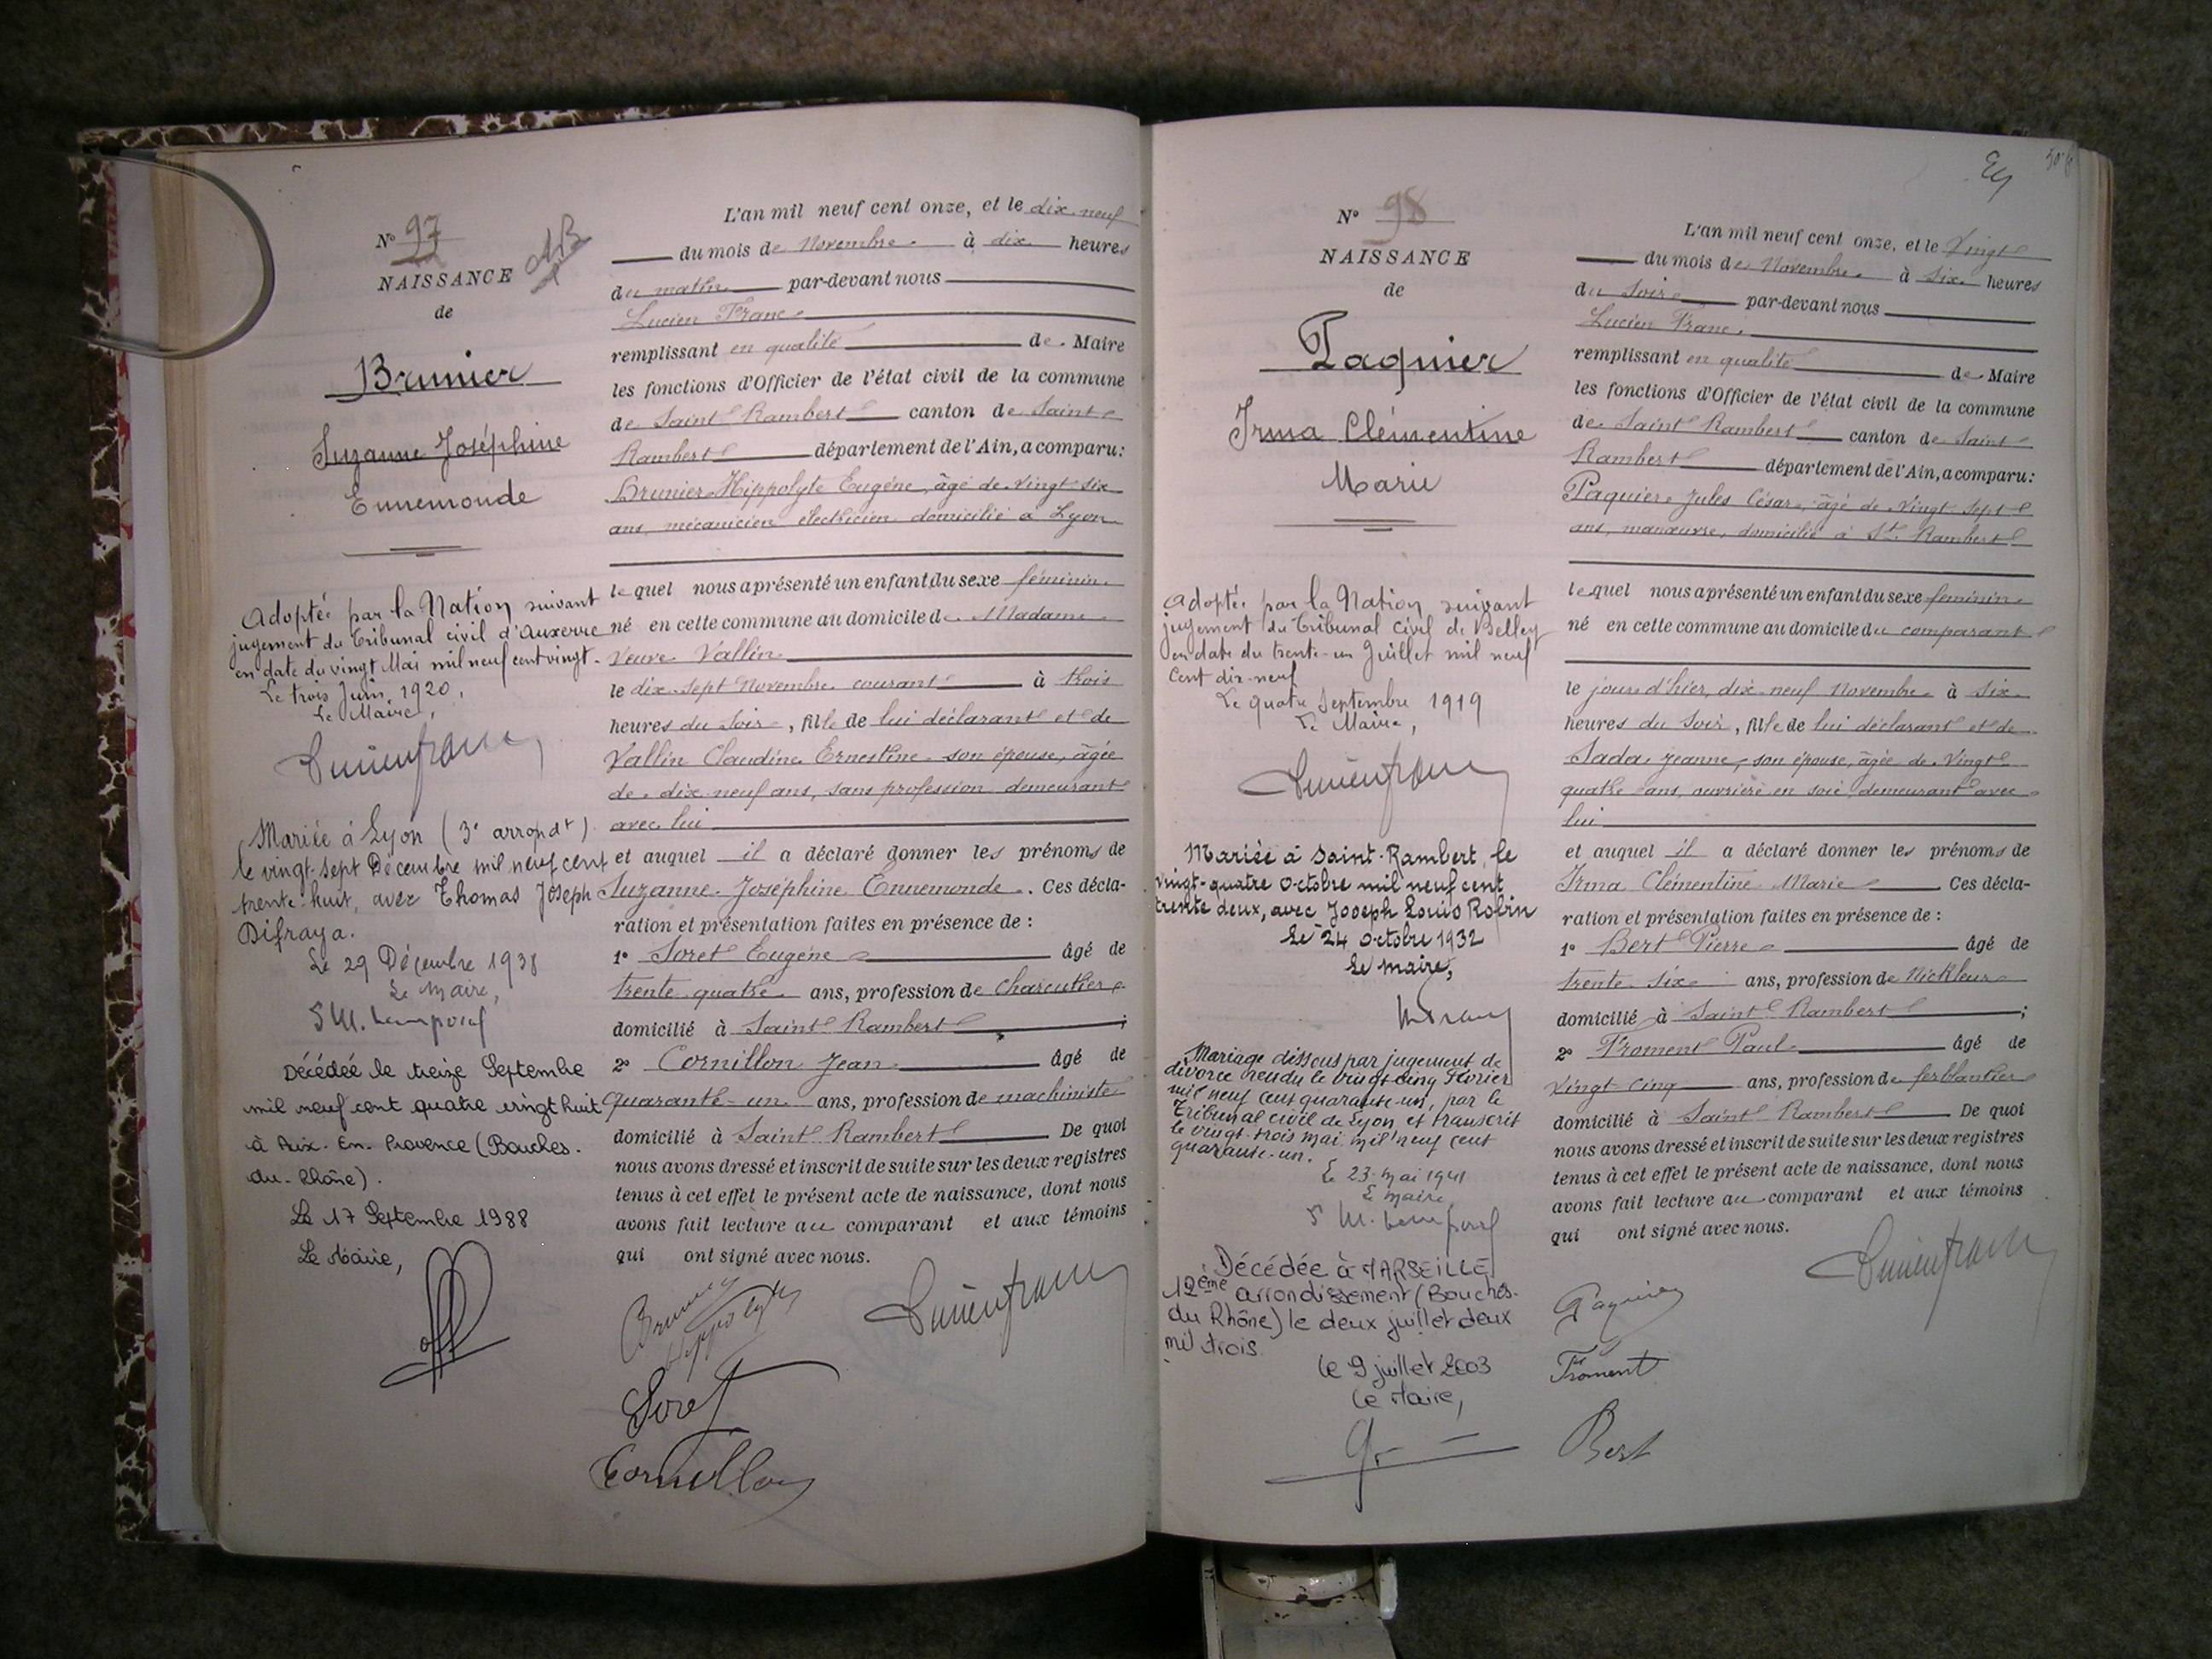 N° 97
NAISSANCE
de
Brunier
Suzanne Joséphine
Ennemonde
Adoptée par la Nation suivant
jugement du Tribunal civil d'Auxerre
en date du vingt Mai mil neuf cent vingt.
Le trois Juin 1920,
Le Maire,
Lucien franc
Mariée à Lyon (3e arrondt)
le vingt-sept Décembre mil neuf cent
trente-huit, avec Thomas Joseph
Difraya.
Le 29 Décembre 1938
Le Maire,
Décédée le treize Septembre
mil neuf cent quatre vingt huit
à Aix-En-Provence (Bouches-
du-Rhône).
Le 17 Septembre 1988
Le Maire,
L'an mil neuf cent onze, et le dix-neuf
du mois de Novembre à dix heures
du matin par-devant nous
Lucien Franc
remplissant en qualité de Maire
les fonctions d'Officier de l'état civil de la commune
de Saint Rambert canton de Saint
Rambert département de l'Ain, a comparu:
Brunier Hippolyte Eugène, âgé de vingt six
ans, mécanicien électricien domicilié à Lyon
lequel nous a présenté un enfant du sexe féminin
né en cette commune au domicile de Madame
Veuve Vallin
le dix-sept Novembre courant à trois
heures du soir, fille de lui déclarant et de
Vallin Claudine Ernestine son épouse, âgée
de dix-neuf ans, sans profession demeurant
avec lui
et auquel il a déclaré donner les prénoms de
Suzanne Joséphine Ennemonde. Ces décla-
ration et présentation faites en présence de :
1° Soret Eugène âgé de
trente-quatre ans, profession de Charcutier
domicilié à Saint Rambert ;
2° Cornillon Jean âgé de
quarante-un ans, profession de machiniste
domicilié à Saint Rambert De quoi
nous avons dressé et inscrit de suite sur les deux registres
tenus à cet effet le présent acte de naissance, dont nous
avons fait lecture au comparant et aux témoins
qui ont signé avec nous.
Brunier
Hippolyte
Lucien franc
Soret
Cornillon
N° 98
NAISSANCE
de
Paquier
Irma Clémentine
Marie
Adoptée par la Nation suivant
jugement du Tribunal Civil de Belley
en date du trente-un Juillet mil neuf
Cent dix-neuf
Le quatre Septembre 1919
Le Maire,
Lucien franc
Mariée à Saint-Rambert, le
vingt-quatre octobre mil neuf cent
trente deux, avec Joseph Louis Robin
Le 24 octobre 1932
Le maire,
Mariage dissous par jugement de
divorce rendu le vingt-cinq Février
mil neuf cent quarante-un, par le
Tribunal civil de Lyon et transcrit
le vingt-trois mai mil neuf cent
quarante-un.
Le 23 mai 1941
Le maire
Décédée à MARSEILLE
12ème arrondissement (Bouches-
du Rhône) le deux juillet deux
mil trois.
le 9 juillet 2003
Le Maire,
L'an mil neuf cent onze, et le Vingt
du mois de Novembre à six heures
du soir par-devant nous
Lucien Franc
remplissant en qualité de Maire
les fonctions d'Officier de l'état civil de la commune
de Saint Rambert canton de Saint
Rambert département de l'Ain, a comparu:
Paquier Jules César, âgé de Vingt-sept
ans, manœuvre, domicilié à St Rambert
lequel nous a présenté un enfant du sexe féminin
né en cette commune au domicile du comparant
le jour d'hier, dix-neuf Novembre à six
heures du soir, fille de lui déclarant et de
Sada Jeanne, son épouse, âgée de Vingt
quatre ans, ouvrière en soie, demeurant avec
lui
et auquel il a déclaré donner les prénoms de
Irma Clémentine Marie Ces décla-
ration et présentation faites en présence de :
1° Bert Pierre âgé de
trente-six ans, profession de Nickleur
domicilié à Saint Rambert ;
2° Froment Paul âgé de
vingt-cinq ans, profession de ferblantier
domicilié à Saint Rambert De quoi
nous avons dressé et inscrit de suite sur les deux registres
tenus à cet effet le présent acte de naissance, dont nous
avons fait lecture au comparant et aux témoins
qui ont signé avec nous.
Lucien franc
Paquier
Froment
Bert